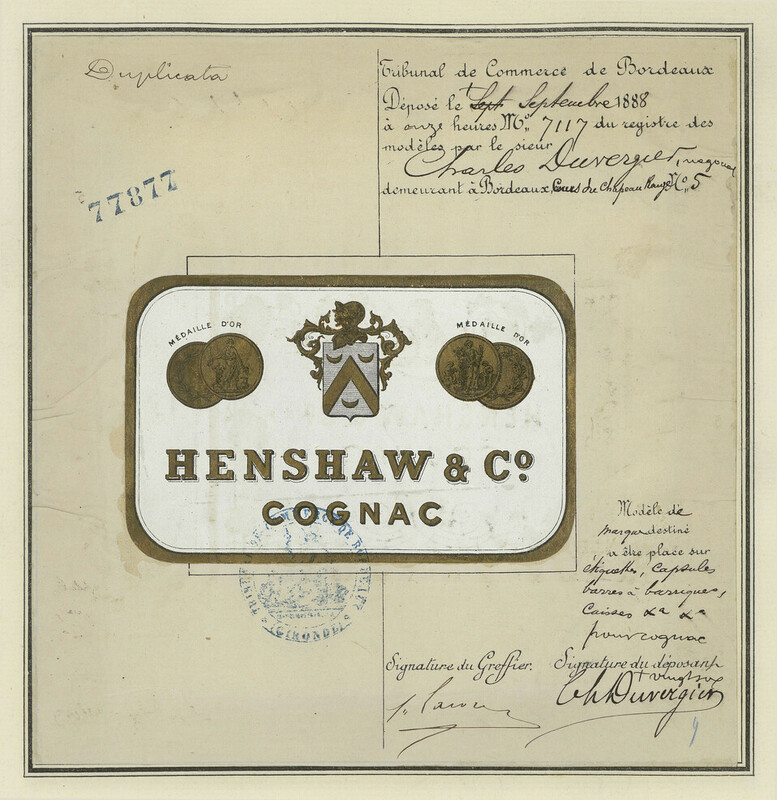 Duplicata
77877
Tribunal de Commerce de Bordeaux
Déposé le Sept Septembre 1888
à onze heures No. 7117 du registre des
modèles par le sieur
Charles Duvergier,
demeurant à Bordeaux, Cours du Chapeau Rouge No. 5
MÉDAILLE D'OR
MÉDAILLE D'OR
HENSHAW & Co.
COGNAC
Modèle de
marque destiné
à être placé sur
étiquettes, capsules
barres à barriques,
Caisses &a &a
pour cognac
Signature du Greffier.
Signature du déposant
Ch Duvergier
(GIRONDE)